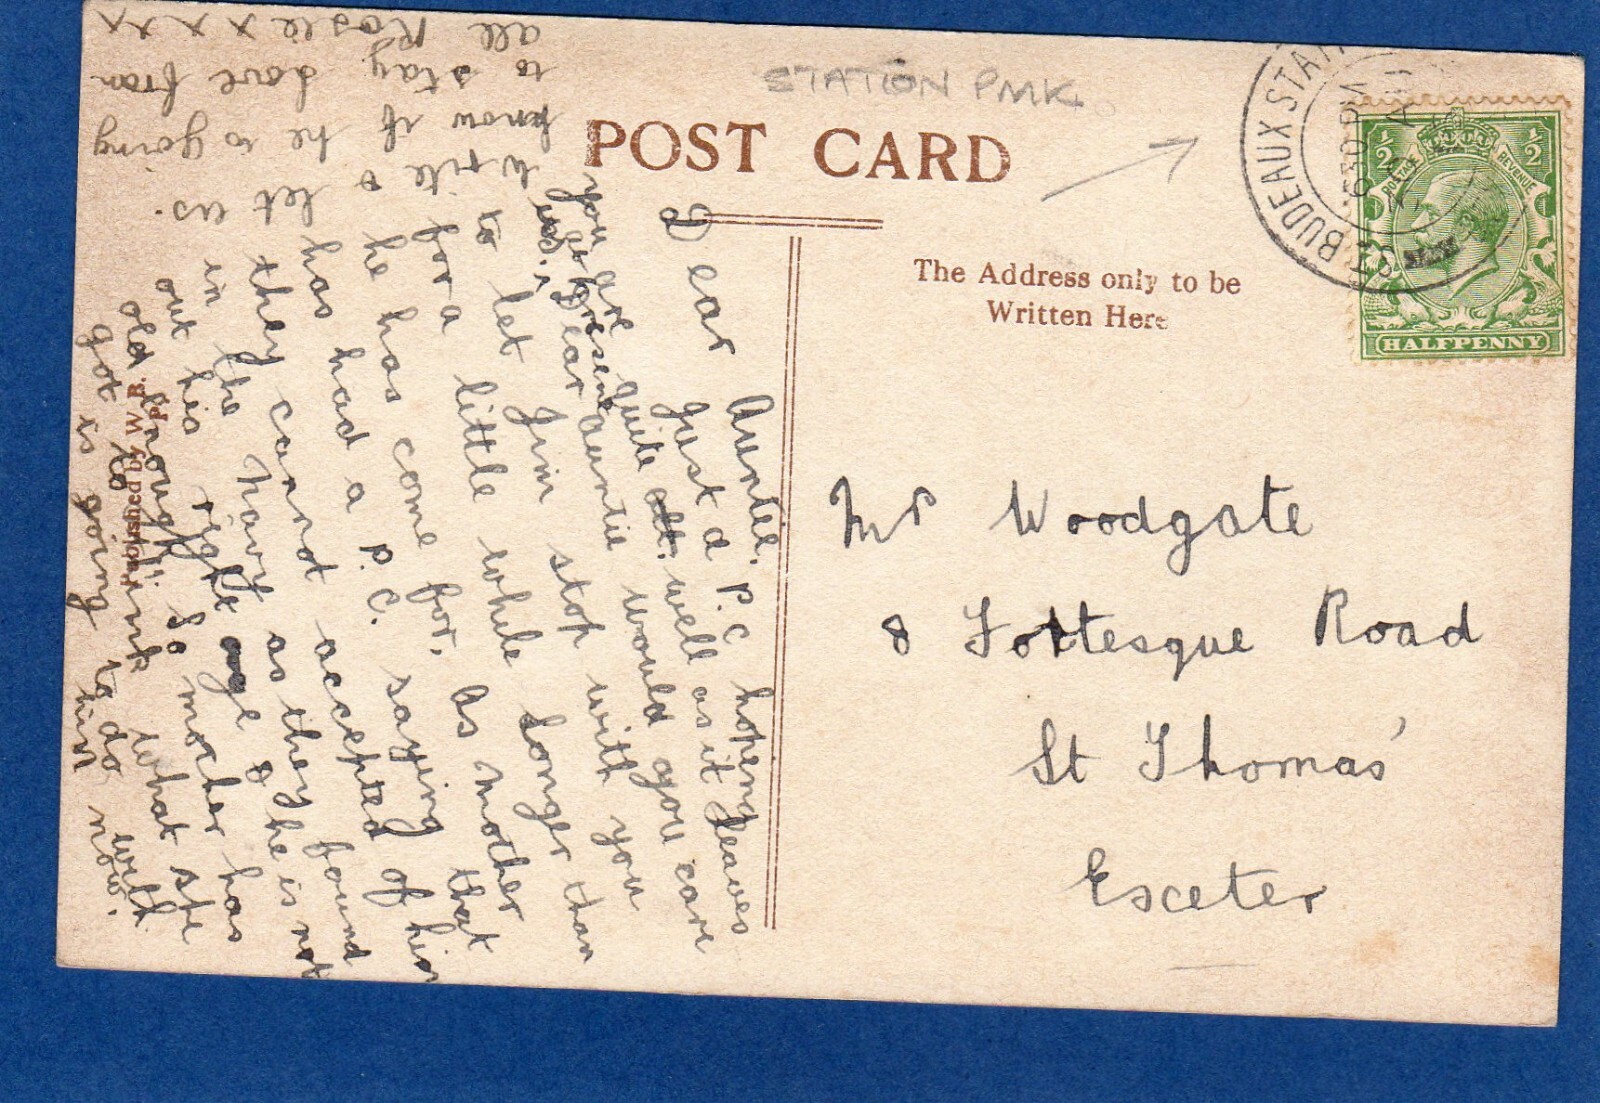 STATION PMK.
POST CARD
The Address only to be
Written Here
ST BUDEAUX STAT
630 PM
POSTAGE REVENUE
1/2 1/2
HALFPENNY
Mr Woodgate
8 Fortesque Road
St Thomas'
Exceter
Dear Auntie.
Just a P.C hopeing
you are quite all well as it leaves
us. Dear auntie would you care
to let Jim stop with you
for a little while longer than
he has come for, as mother
has had a P.C. saying that
they cannot accepted of him
in the Navy as they found
out his right age & he is not
old enough. So mother has
got to think what she
is going to do with
him now.
Write & let us
know if he is going
to stay Love from
all Rosie x x xx
Published by W. B. P.